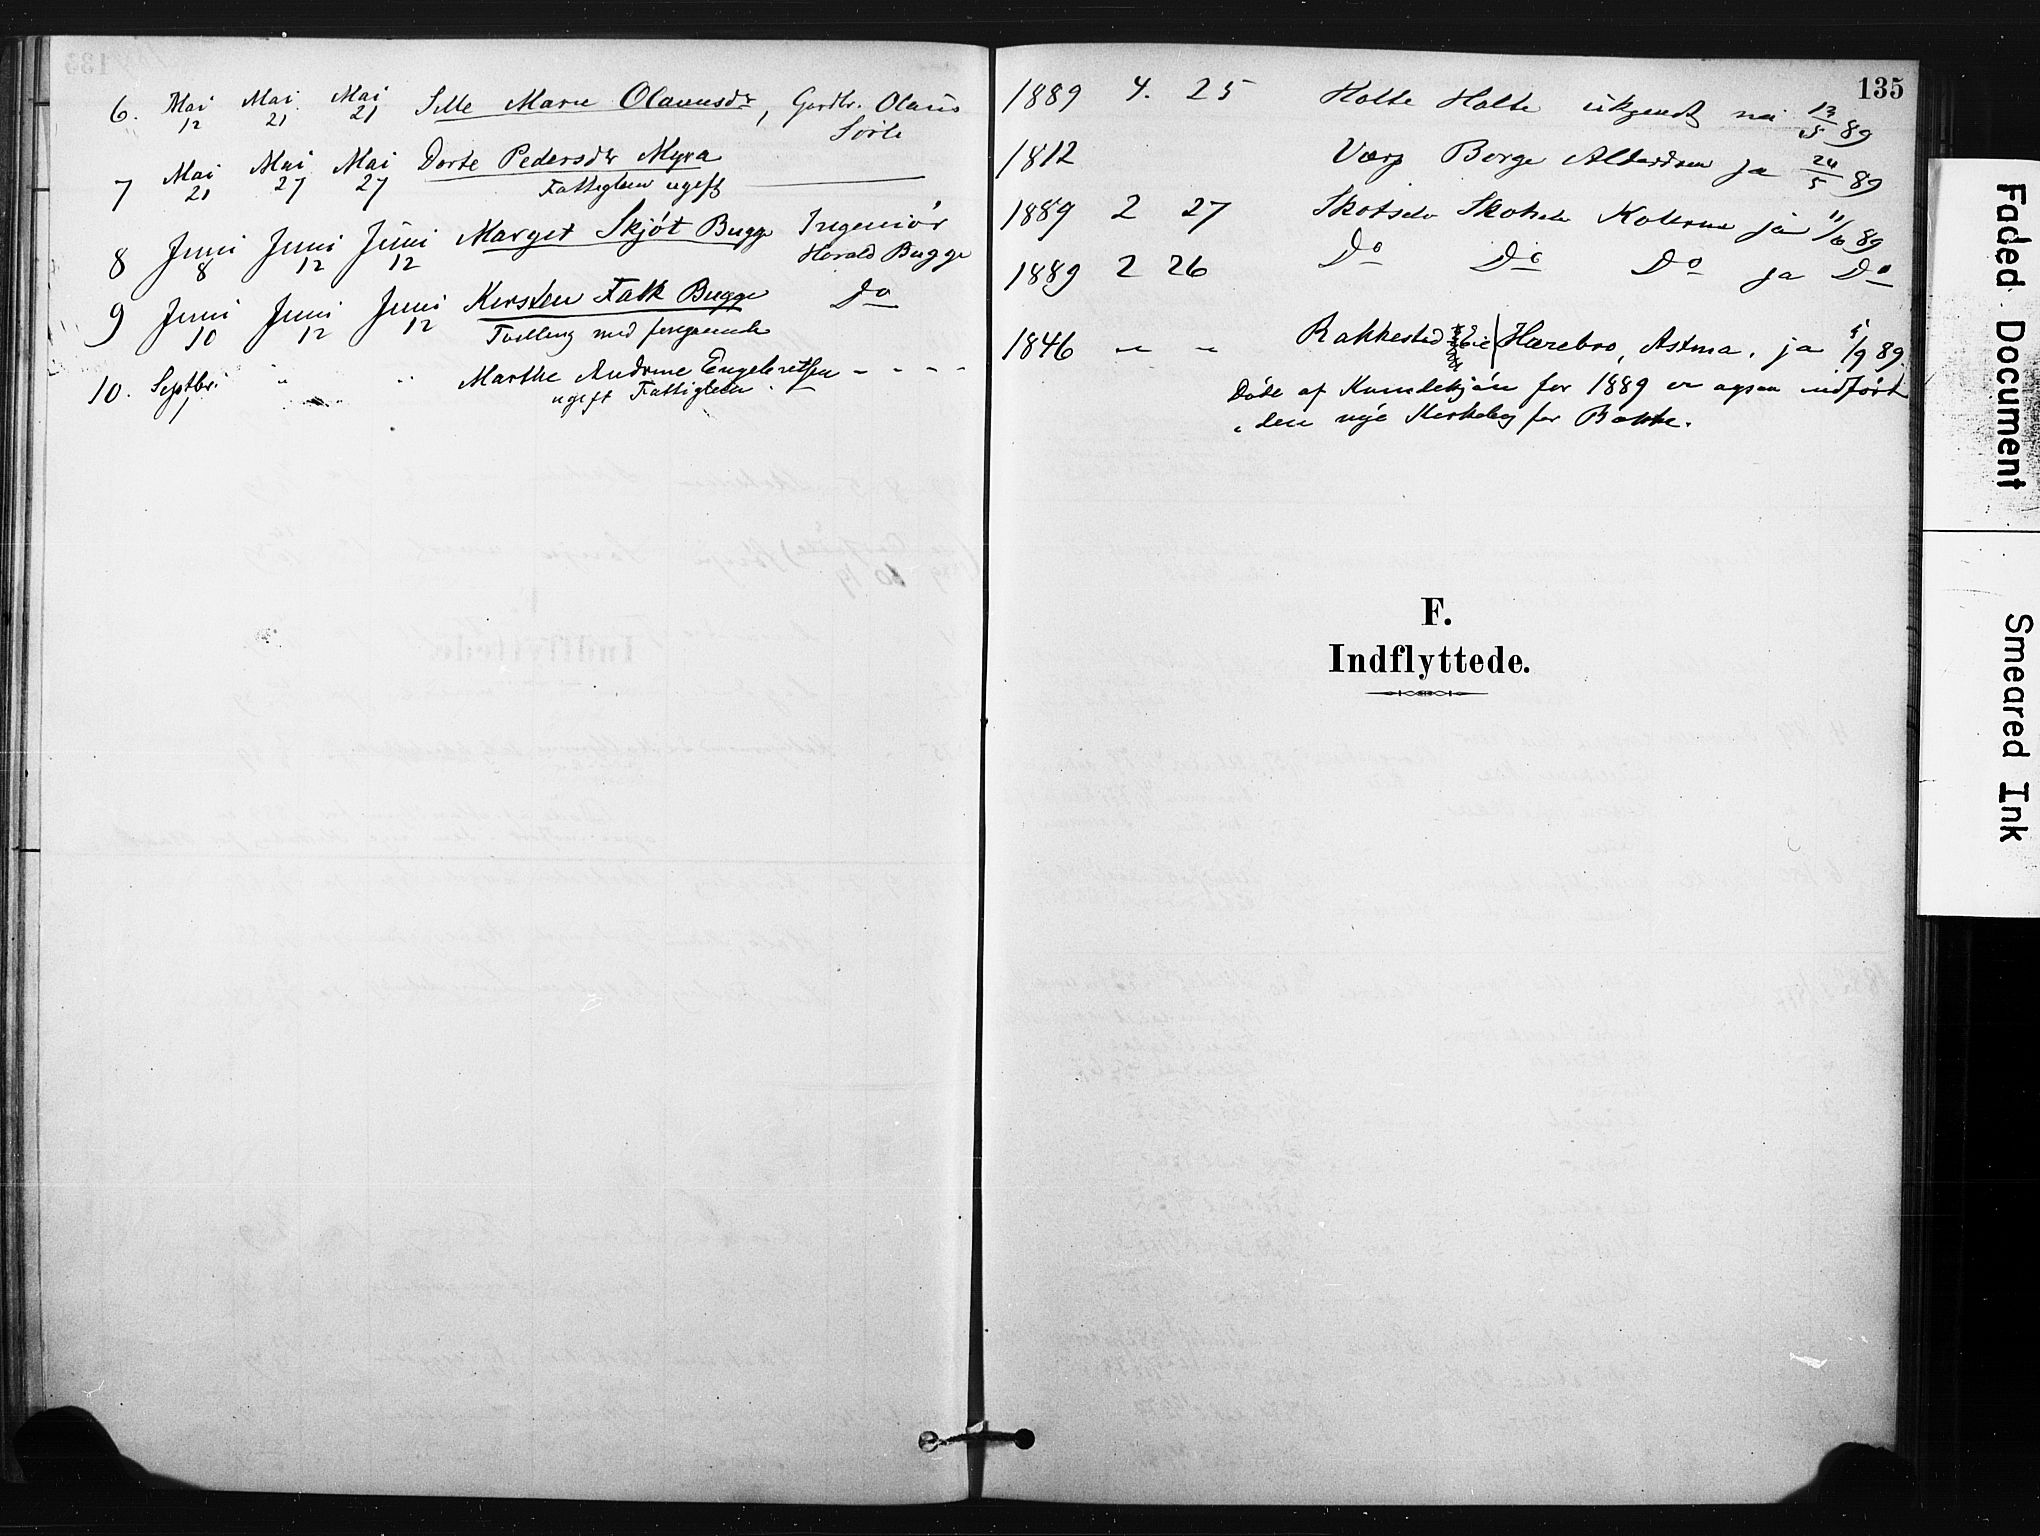 135
6. Mai 12 Mai 21 Mai 21 Marie Olausdr, Gaardbr. Olaus 1889 4. 25 Holte Holte nei 13/5 89
7 Mai 21 Mai 27 Mai 27 Dorte Pedersdr Myra 1812 Borge ja 24/5 89
Fattiglem ugift
8 Juni 8 Juni 12 Juni 12 Marget Skjöt Bugge Ingeniör 1889 2 27 Skotselv ja 11/6 89
Harald Bugge
9 Juni 10 Juni 12 Juni 12 Kirsten Falk Bugge Do 1889 2 26 Do Do Do ja Do
Tvilling med foregaaende
10. Septbr. 1 " " Marthe Andrine Engebretsen - - - - 1846 " " Rakkestad Harebro, Astma. ja 5/9 89.
ugift Fattiglem
Döde af for 1889 er ogsaa indfört
i den nye Kirkebog for Bakke.
F.
Indflyttede.
Faded Document
Smeared Ink